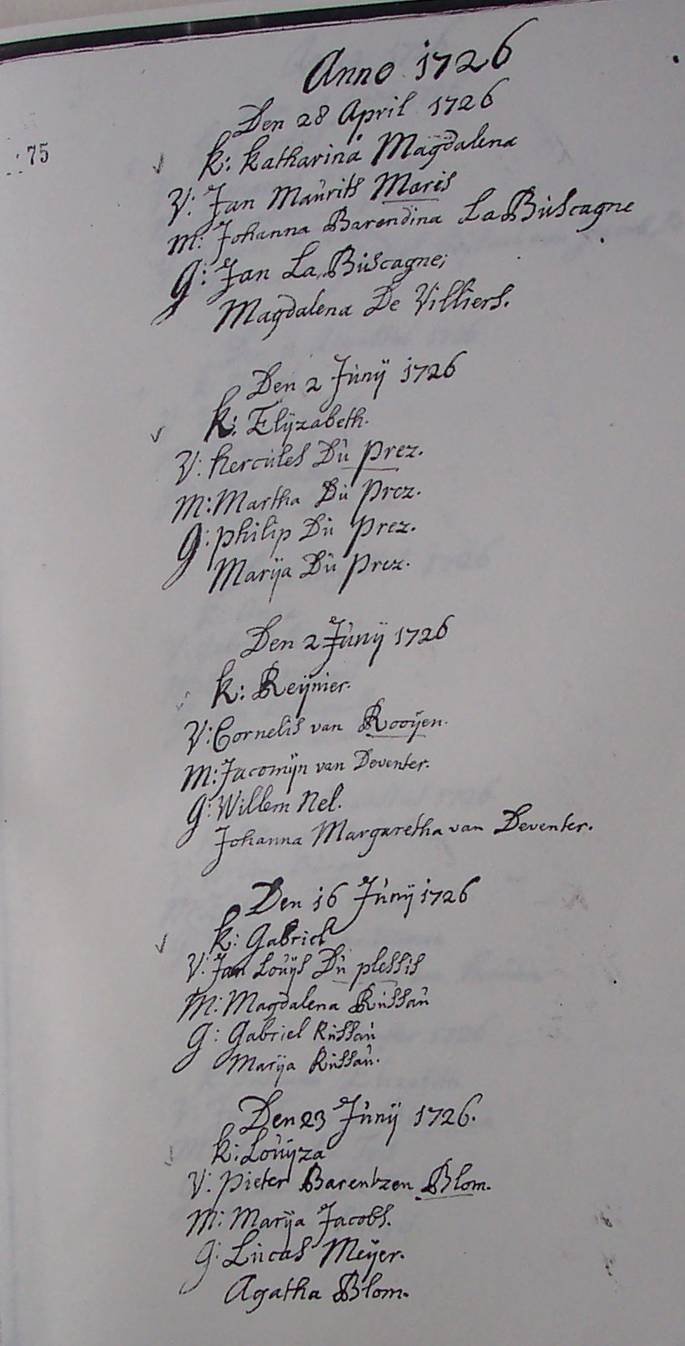 Anno 1726
75
Den 28 April 1726
k: Katharina Magdalena
V: Jan Maurits Maris
M: Johanna Barendina La Buscagne
G: Jan La Buscagne;
Magdalena De Villiers.
Den 2 Junij 1726
k: Elyzabeth.
V: hercules Du Prez.
M: Martha Du Prez.
G: Philip Du Prez.
Marija Du Prez.
Den 2 Junij 1726
k: Reynier.
V: Cornelis van Rooijen.
M: Jacomijn van Deventer.
G: Willem Nel.
Johanna Margaretha van Deventer.
Den 16 Junij 1726
k: Gabriel
V: Jan Louijs Du plessis
M: Magdalena Russau
G: Gabriel Russau
Marija Russau.
Den 23 Junij 1726.
k: Louijza
V: Pieter Barentzen Blom.
M: Marija Jacobs.
G: Lucas Meyer.
Agatha Blom.